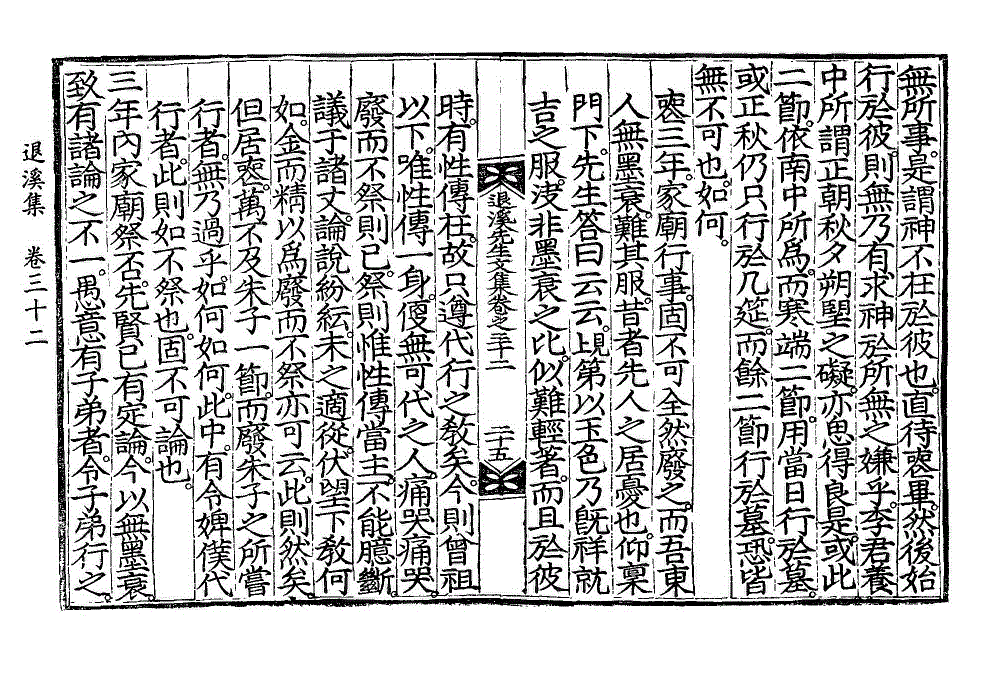 無所事。是謂神不在於彼也。直待喪畢。然後始
行於彼。則無乃有求神於所無之嫌乎。李君養
中所謂正朝秋夕朔望之礙。亦思得良是。或此
二節。依南中所爲。而寒端二節。用當日行於墓。
或正秋仍只行於几筵。而餘二節行於墓。恐皆
無不可也。如何。
喪三年。家廟行事。固不可全然廢之。而吾東
人無墨衰。難其服。昔者先人之居憂也。仰稟
門下。先生答曰云云。覞第以玉色乃旣祥就
吉之服。決非墨衰之比。似難輕著。而且於彼
退溪先生文集卷之三十二
二十五
時。有性傳在。故只遵代行之敎矣。今則曾祖
以下。唯性傳一身。傻無可代之人。痛哭痛哭。
廢而不祭則已。祭則惟性傳當主。不能臆斷。
議于諸丈。論說紛紜。未之適從。伏望下敎何
如。金而精以爲廢而不祭亦可云。此則然矣。
但居喪。萬不及朱子一節。而廢朱子之所嘗
行者。無乃過乎。如何如何。此中。有令婢僕代
行者。此則如不祭也。固不可論也。
三年內家廟祭否。先賢已有定論。今以無墨衰。
致有諸論之不一。愚意有子弟者。令子弟行之。
退溪集 卷三十二